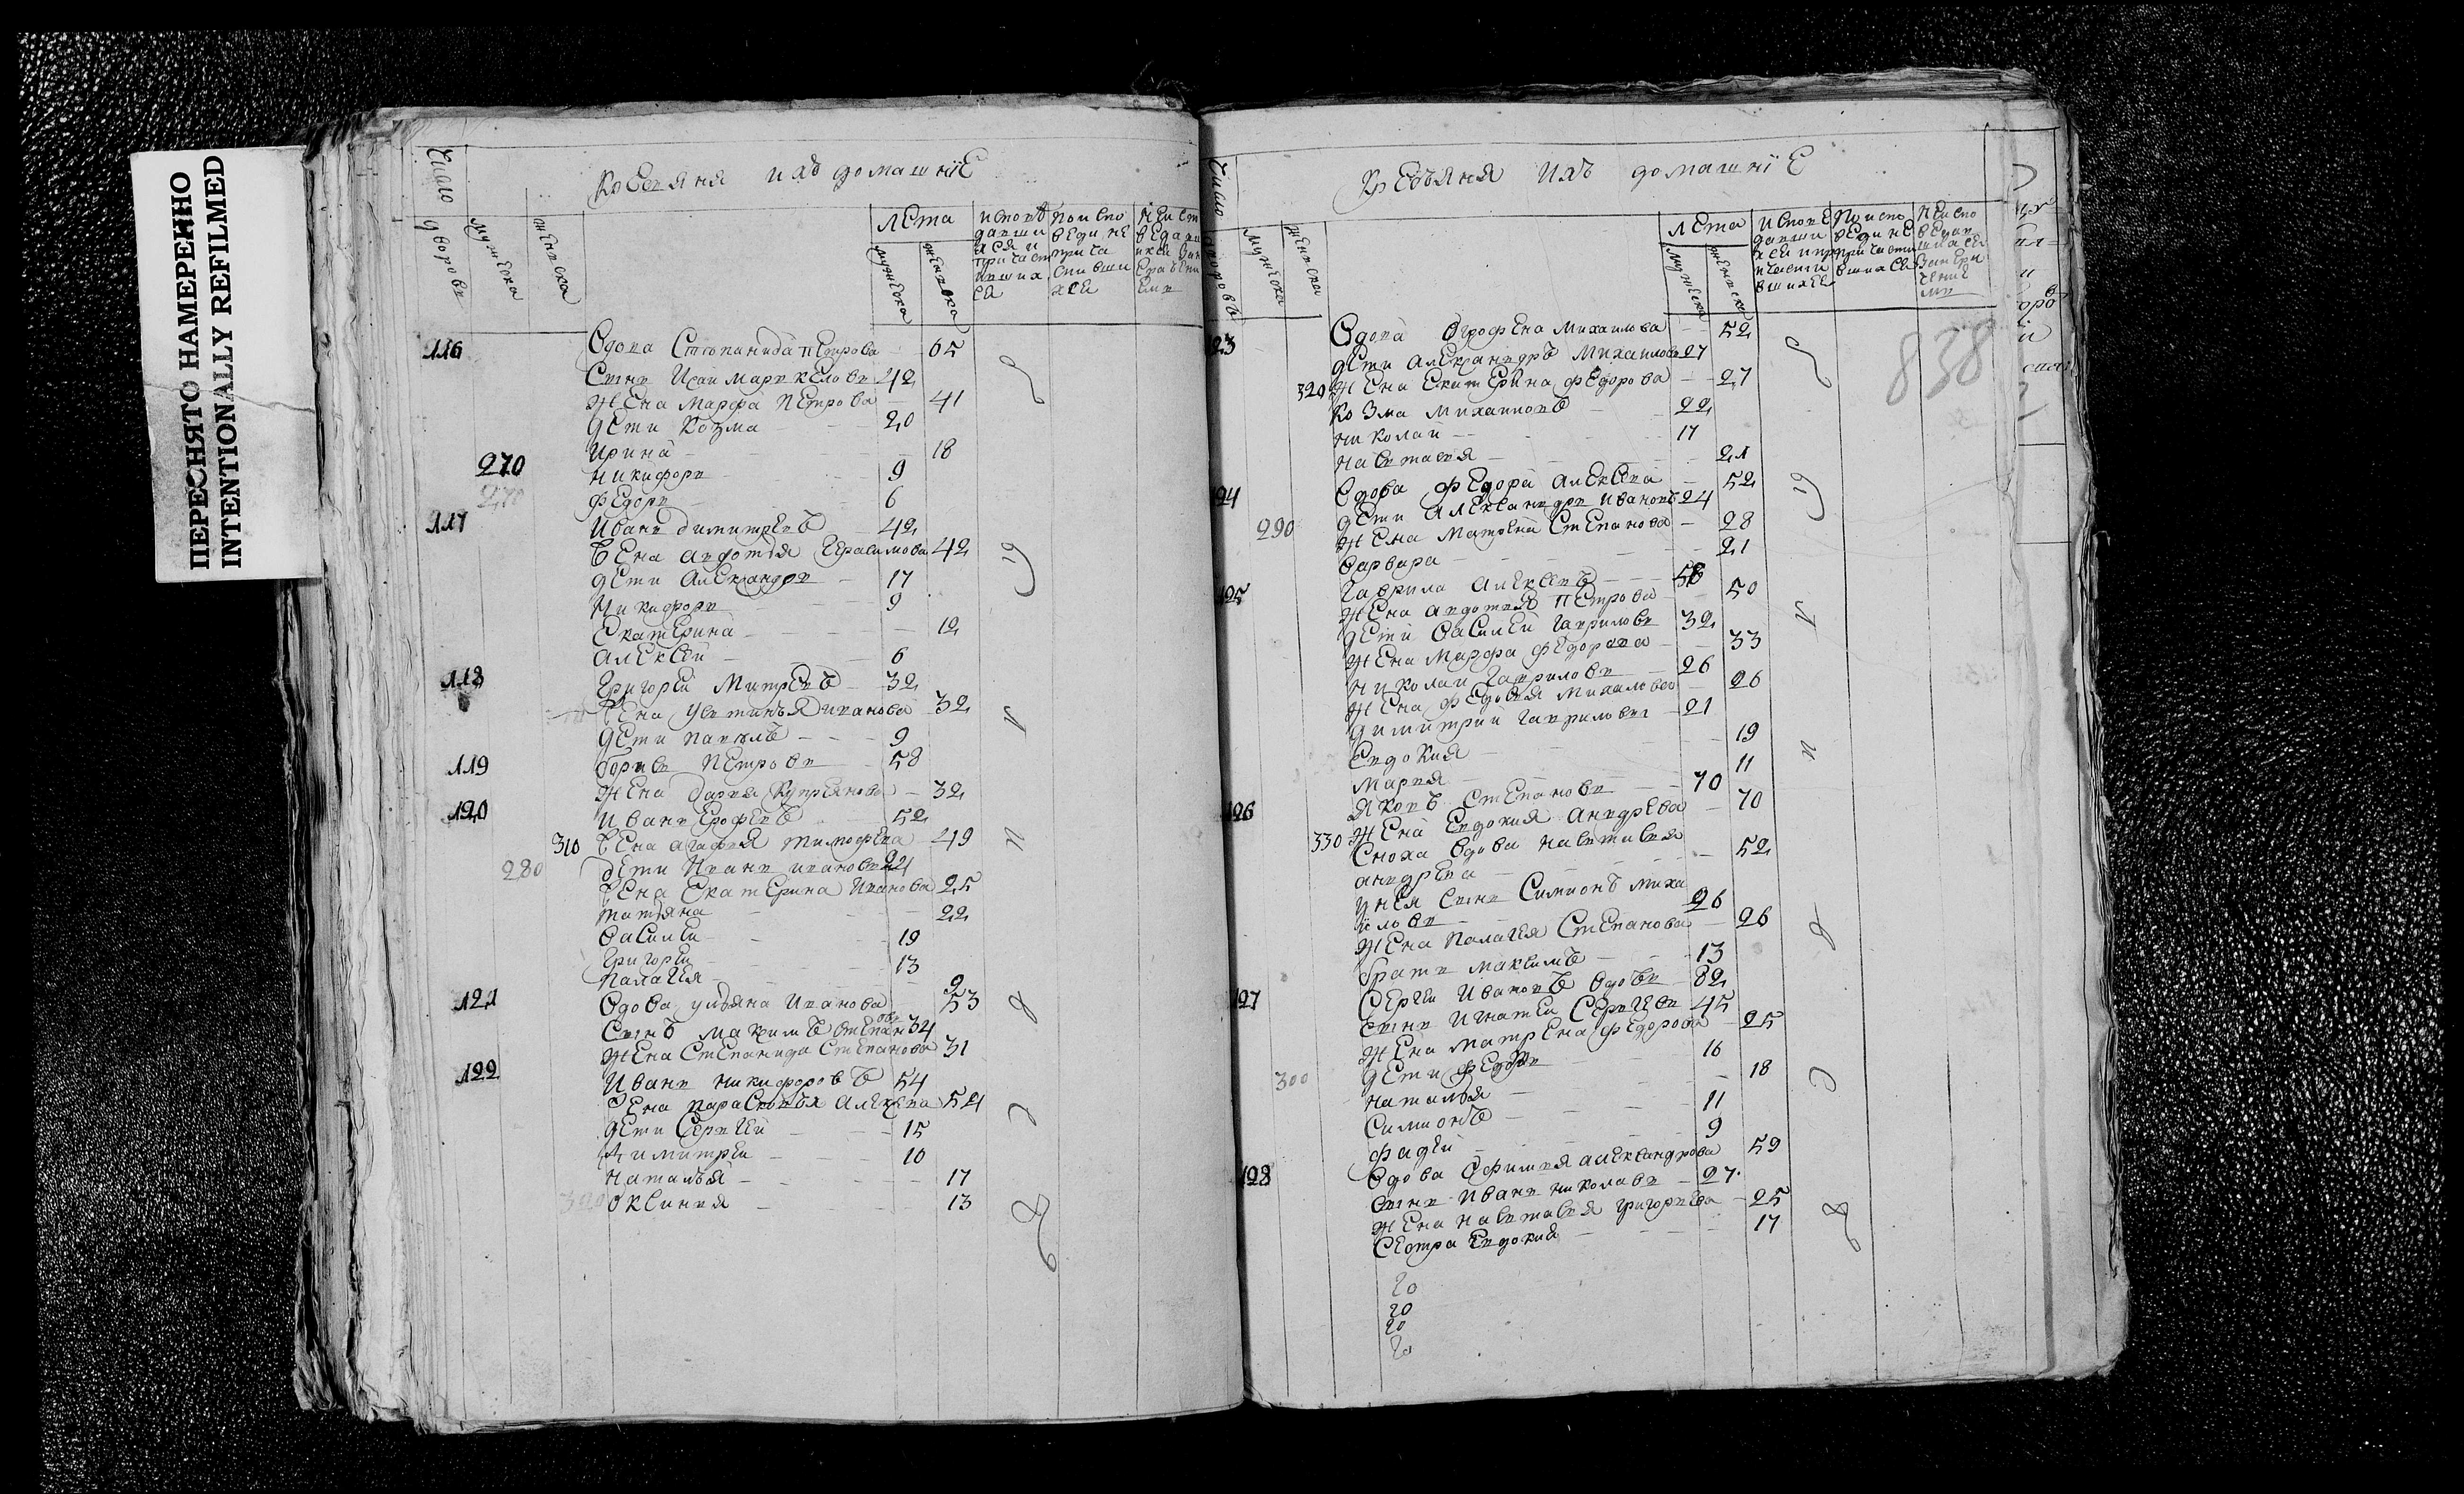 ПЕРЕСНЯТО НАМЕРЕННО
INTENTIONALLY REFILMED
Число
дворовъ
мужеска
женска
домашніе
лѣта
мужеска
женска
116 Вдова Степанида Петрова 65
42
Жена Марфа Петрова 41
Дѣти Козма 20
Ирина 18
270 Никифоръ 9
270 Федоръ 6
117 Иванъ Димитревъ 42
Жена Авдотія Герасимова 42
Дѣти Александръ 17
Никифоръ 9
Екатерина 12
Алексѣй 6
118 Григорей Митревъ 32
Жена Устинья Иванова 32
Дѣти Павелъ 9
119 Борисъ Петровъ 58
Жена Дарья Купрѣянова 32
120 Иванъ Ерофѣевъ 52
310 Жена Агафья Тимофѣева 49
280 Дѣти Иванъ Ивановъ
Жена Екатерина Иванова 25
Татьяна 22
Василей 19
Григорей 13
Палагея 9
121 Вдова Ульяна Иванова 53
Сынъ Максимъ Степановъ 34
Жена Степанида Степанова 31
122 Иванъ Никифоровъ 54
Жена Парасковья Алексѣева
Дѣти Сергей 15
Димитрей 10
Наталья 17
320 Оксинья 13
домашніе
838
лѣта
мужеска
женска
Вдова Огрофена Михаилова 52
Дѣти Александръ Михаиловъ 27
320 Жена Екатерина Федорова 27
Козма Михаиловъ 22
Николай 17
Настасья 21
Вдова Федора Алексѣева 52
Дѣти Александръ Ивановъ 24
290 Жена Матрена Степанова 28
Варвара 21
Гаврила Алексѣевъ
Жена Авдотья Петрова 50
Дѣти Василей Гавриловъ 32
Жена Марфа Федорова 33
Николай Гавриловъ 26
Жена Федосья Михаилова 26
Димитрий Гавриловъ 21
Евдокия 19
Марья 11
126 Яковъ Степановъ 70
330 Жена Евдокия Андрева 70
Сноха Вдова Настасья
Андрева 52
У нея сынъ Симионъ Миха
иловъ 26
Жена Палагея Степанова 26
Братъ Максимъ 13
127 Сергей Ивановъ Вдовъ 82
Сынъ Игнатей Сергевъ 45
Жена Матрена Федорова 25
300 Дѣти Федоръ 16
Наталья 18
Симионъ 11
Фадей 9
128 Вдова Офимья Александрова 59
Сынъ Иванъ Николавъ 27
Жена Настасья Григорьева 25
Сестра Евдокия 17
20
20
20
20